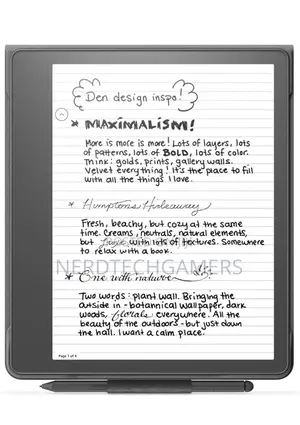 Den design inspo!
* MAXIMALISM!
More is more is more! Lots of layers, lots
of patterns, lots of BOLD, lots of color.
Think: golds, prints, gallery walls.
Velvet everything! It's the place to fill
with all the things I love.
* Hamptons Hideaway
Fresh, beachy, but cozy at the same
time. Creams, neutrals, natural elements,
but with lots of textures. Somewhere
to relax with a book.
NERDTECHGAMERS
* One with nature
Two words: plant wall. Bringing the
outside in - botannical wallpaper, dark
woods, florals everywhere. All the
beauty of the outdoors - but just down
the hall. I want a calm place.
Page 7 of 9